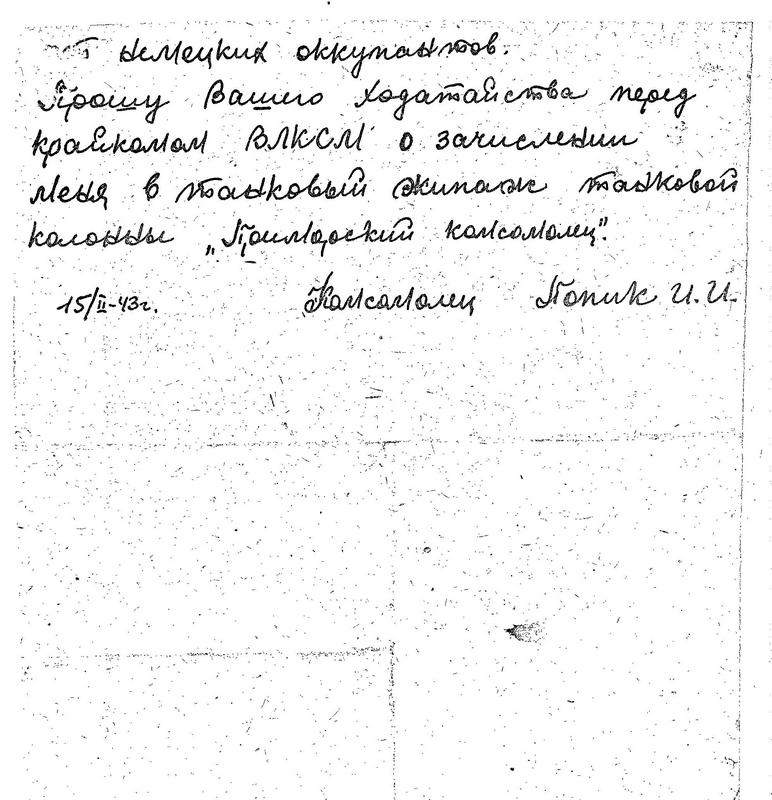 немецких оккупантов.
Прошу Вашего ходатайства перед
крайкомом ВЛКСМ о зачислении
меня в танковый экипаж танковой
колонны „Приморский комсомолец".
15/II-43г. Комсомолец Попик И.И.